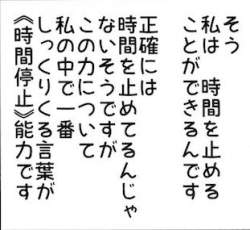 そう
私は　時間を止める
ことができるんです
正確には
時間を止めてるんじゃ
ないそうですが
この力について
私の中で一番
しっくりくる言葉が
《時間停止》能力です